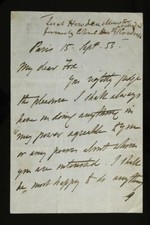 Lord Howden Minister
formerly Colonel
Paris 15 Sept. 53.
My dear Fox
You rightly judge
the pleasure I shall always
have in doing anything in
my power agreeable to you
or any person about whom
you are interested. I shall
be most happy to do anything